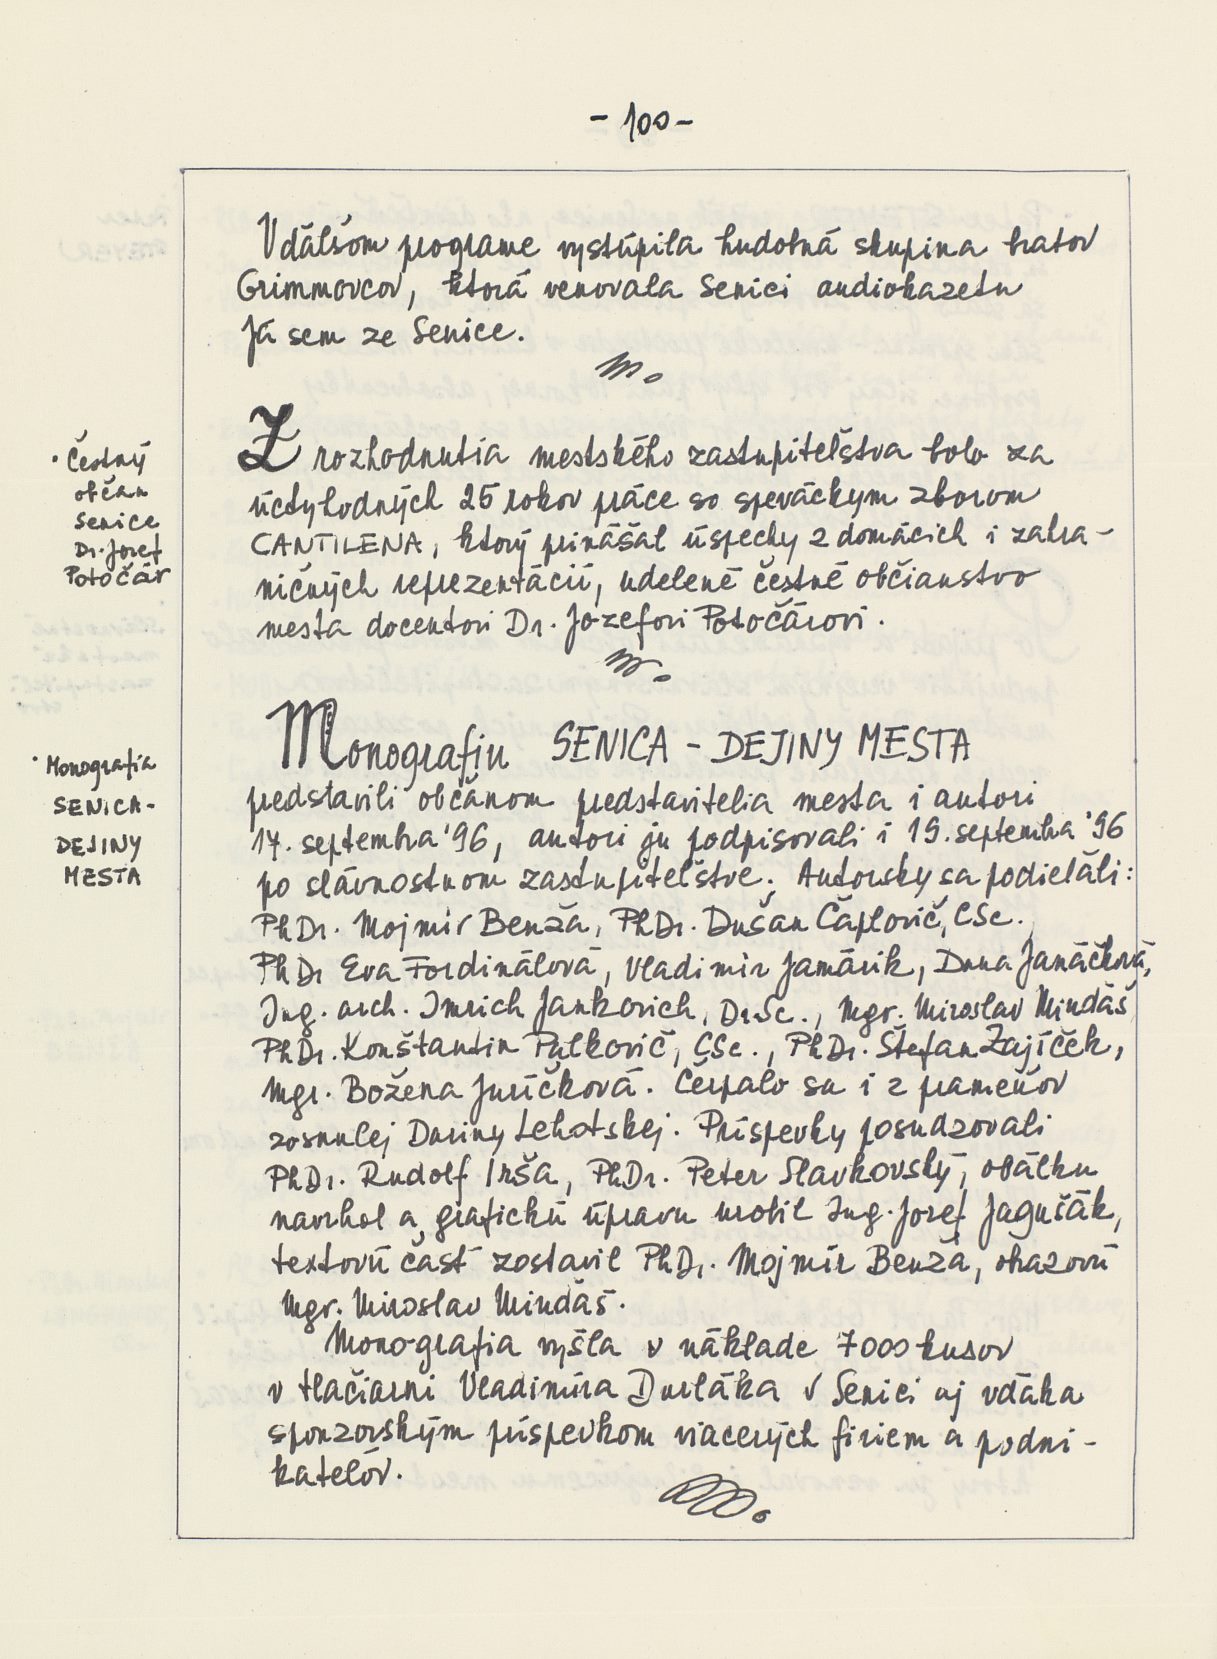 - 100 -
V ďalšom programe vystúpila hudobná skupina bratov
Grimmovcov, ktorá venovala Senici audiokazetu
Já sem ze Senice.
Z rozhodnutia mestského zastupiteľstva bolo za
úctyhodných 25 rokov práce so speváckym zborom
CANTILENA, ktorý prinášal úspechy z domácich i zahra-
ničných reprezentácií, udelené čestné občianstvo
mesta docentovi Dr. Jozefovi Potočárovi.
· Čestný
občan
Senice
Dr. Jozef
Potočár
Monografiu SENICA - DEJINY MESTA
predstavili občanom predstavitelia mesta i autori
17. septembra '96, autori ju podpisovali i 19. septembra '96
po slávnostnom zastupiteľstve. Autorsky sa podieľali:
PhDr. Mojmír Benža, PhDr. Dušan Čaplovič, CSc.,
PhDr Eva Fordinálová, Vladimír Jamárik, Dana Janáčková,
Ing. arch. Imrich Jankovich, DrSc., Mgr. Miroslav Mindáš
PhDr. Konštantin Palkovič, CSc., PhDr. Štefan Zajíček,
Mgr. Božena Juríčková. Čerpalo sa i z prameňov
zosnulej Dariny Lehotskej. Príspevky posudzovali
PhDr. Rudolf Irša, PhDr. Peter Slavkovský, obálku
navrhol a grafickú úpravu urobil Ing. Jozef Jagušák,
textovú časť zostavil PhDr. Mojmír Benža, obrazovú
Mgr. Miroslav Mindáš.
Monografia vyšla v náklade 7000 kusov
v tlačiarni Vladimíra Durláka v Senici aj vďaka
sponzorským príspevkom viacerých firiem a podni-
kateľov.
· Monografia
SENICA-
DEJINY
MESTA